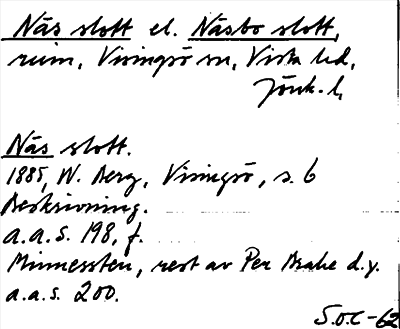 Näs slott el. Näsbo slott,
ruin, Visingsö sn, Vista hd,
Jönk. l.
Näs slott.
1885, W. Berg, Visingsö, s. 6
Beskrivning.
a.a.s. 198, f.
Minnessten, rest av Per Brahe d.y.
a.a.s. 200.
S.O.C-62